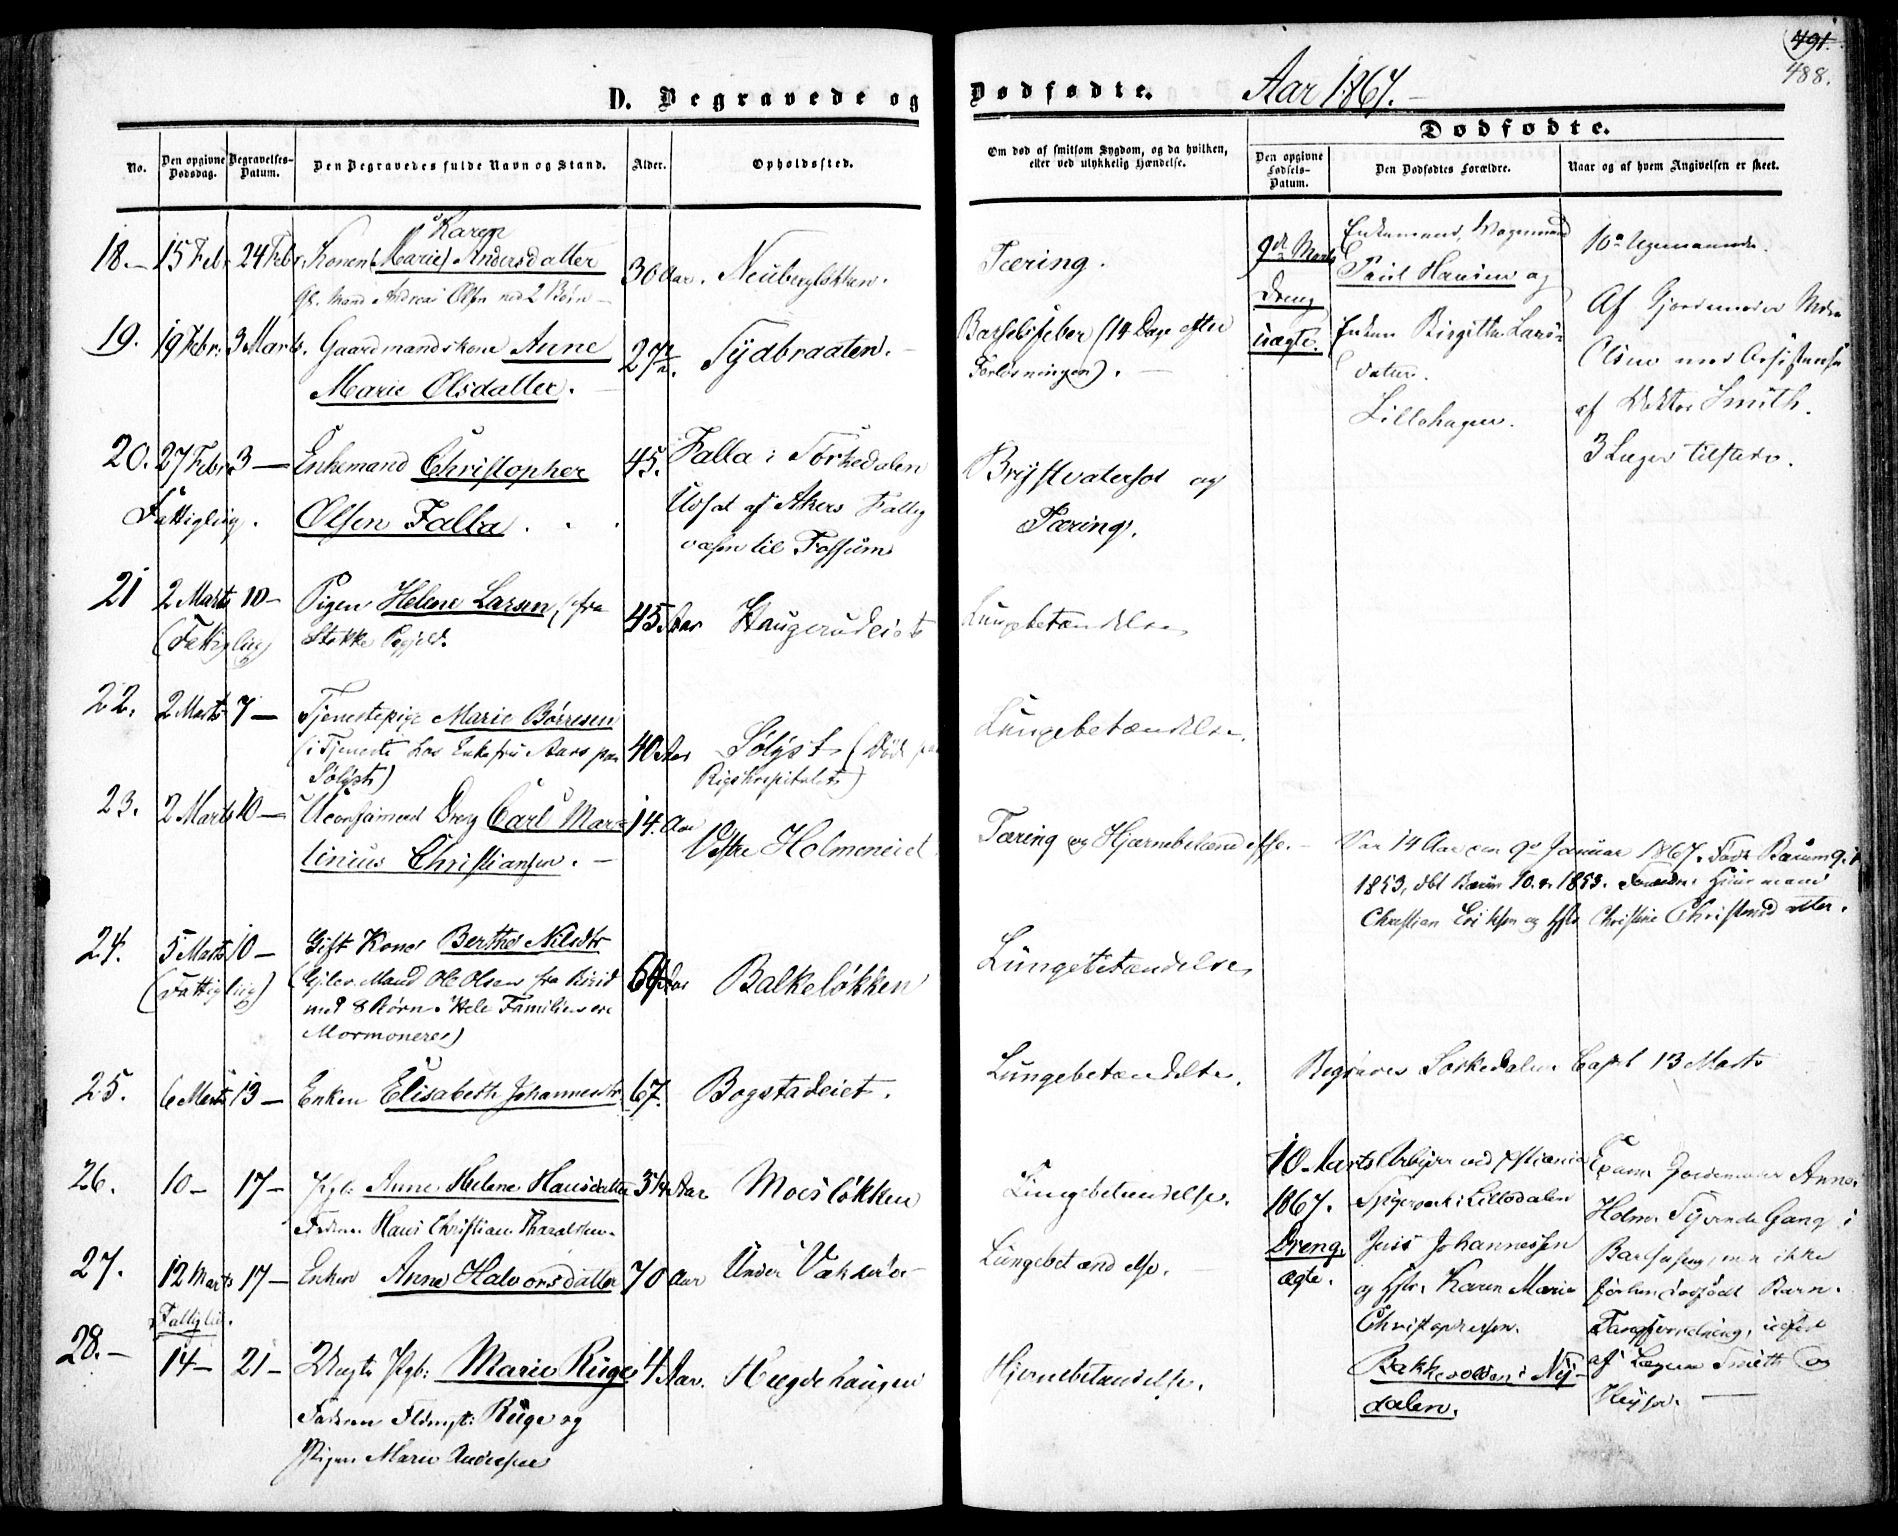 491.
488.
D. Begravede og Dødfødte. Aar 1867.
Dødfødte.
No.
Den opgivne Dødsdag.
Begravelses-Datum.
Den Begravedes fulde Navn og Stand.
Alder.
Opholdssted.
Om død af smitsom Sygdom, og da hvilken,
eller ved ulykkelig Hændelse.
Den opgivne Fødsels-Datum.
Den Dødfødtes Forældre.
Naar og af hvem Angivelsen er skeet.
Karen
18. 15 Febr 24 Febr. Konen (Marie) Andersdatter 30 Aar. Neuberglökken. Tæring.
Gl. Mand Andreas Olsen med 2 Børn
19. 19 Febr. 3 Marts. Gaardmandskone Anne 27 Tydbraaten. Barselsfeber (14 Dage efter
Marie Olsdatter. Forløsningen).
20. 27 Febr 3 Enkemand Christopher 45. Falla i Sørkedalen Brystvatersot og
Fattiglig. Olsen Falla. Udsat af Akers Fattig Tæring.
væsen til Fossum
21 2 Marts 10 Pigen Helene Larsen, fra 45 Aar Haugerudeiet Lungebetændelse
(Fattiglig) Stokke
22. 2 Marts 7 Tjenestepige Marie Børresen 40 Aar Sølyst (Død paa Lungebetændelse.
(i Tjeneste hos Enkefru Aars paa Rigshospitalet)
Sølyst)
23. 2 Marts 10 Uconfirmeret Dreng Carl Mar- 14. Aar Vestre Holmeneiet. Tæring og Hjærnebetændelse.
tinius Christiansen.
Var 14 Aar den 9de Januar 1867. Født Bærum 9.1
1853, døbt Bærum 1853. Forældre: Huusmand
Christian Eriksen og Hstr Christine Christensdatter.
24. 5 Marts 10 Gift Kone Berthe Nilsdtr 64 Aar Balkeløkken Lungebetændelse
(Fattiglig) (Efterl. Mand Ole Olsen fra Birid
med 8 Børn. Hele Familien ere
Mormonere)
25. 6 Marts 13 Enken Elisabeth Johannesdtr 67. Bogstadeiet. Lungebetændelse. Begraves Sørkedalens Capel 13 Marts
26. 10 17 Pgb. Anne Helene Hansdatter 3 Aar Moesløkken Lungebetændelse.
Faderen Hans Christian Tharaldsen.
27. 12 Marts 17 Enken Anne Halvorsdatter 70 Aar Under Vækkerø Lungebetændelse.
Fattiglig.
28. 14 21 Uægte Pgb: Marie Ruge 4 Aar. Hægdehaugen Hjernebetændelse.
Faderen Ruge og
Pigen Marie Andersen
9de Marts
Dreng
uægte.
Enkemand, Vognmand
Paul Hansen og
Enken Birgitte Lars-
datter.
Lillohagen.
10 Ugemaaneder.
Af Gjordemoder
Olsen med Assistanse
af Doktor Smith.
3 Læger tilstede.
10 Marts
1867.
Dreng.
ægte.
Arbejder ved Christiania
Spigerverk i Lillodalen
Jens Johannessen
og Hstr. Karen Marie
Christophersen.
Bakkevolden i Ny-
dalen.
Exam. Jordemoder Anne
Holm. Tyvende Gang i
Barselseng, men ikke
forhen dødfødt Barn.
Tangforløsning, udført
af Lægerne Smith og
Heyer.